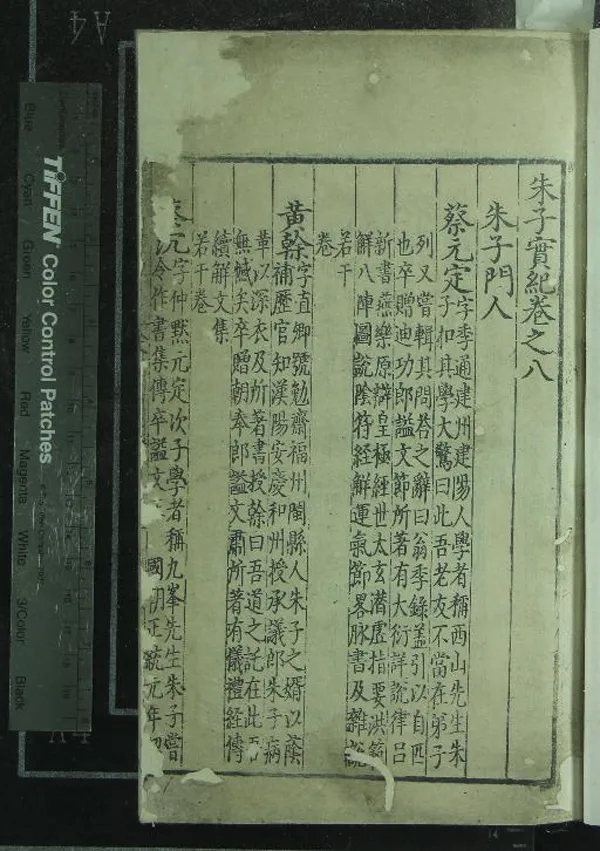 朱子實紀卷之八
朱子門人
蔡元定字季通建州建陽人學者稱西山先生朱
子扣其學大驚曰此吾老友不當在弟子
列又嘗輯其問答之辭曰翁季錄盖引以自匹
也卒贈迪功郎謚文節所著有大衍詳說律呂
新書燕樂原辯皇極經世太玄潜虛指要洪範
觧八陣圖說陰符經觧運氣節畧脉書及雜說
若干
卷
黃榦字直卿號勉齋福州閩縣人朱子之婿以蔭
補歷官知漢陽安慶和州授承議郎朱子病
革以深衣及所著書授榦曰吾道之託在此吾
無憾矣卒贈朝奉郎謚文肅所著有儀禮經傳
續觧文集
若干卷
字仲默元定次子學者稱九峯先生朱子嘗
令作書集傳卒謚文 國朝正統元年
TIFFEN Color Control Patches
Blue
Cyan
Green
Yellow
Red
Magenta
White
3/Color
Black
A4